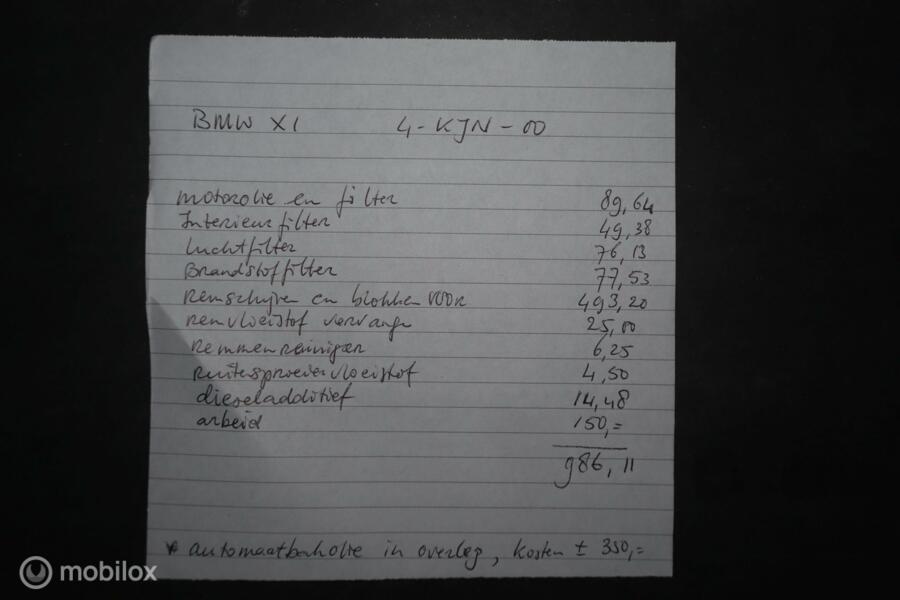 BMW X1 4-KJN-00
motorolie en filter 89,64
Interieurfilter 49,38
luchtfilter 76,13
Brandstoffilter 77,53
remschijven en blokken voor 493,20
remvloeistof vervangen 25,00
remmenreiniger 6,25
ruitensproeiervloeistof 4,50
dieseladditief 14,48
arbeid 150,=
986,11
* automaatbakolie in overleg, kosten ± 350,=
mobilox